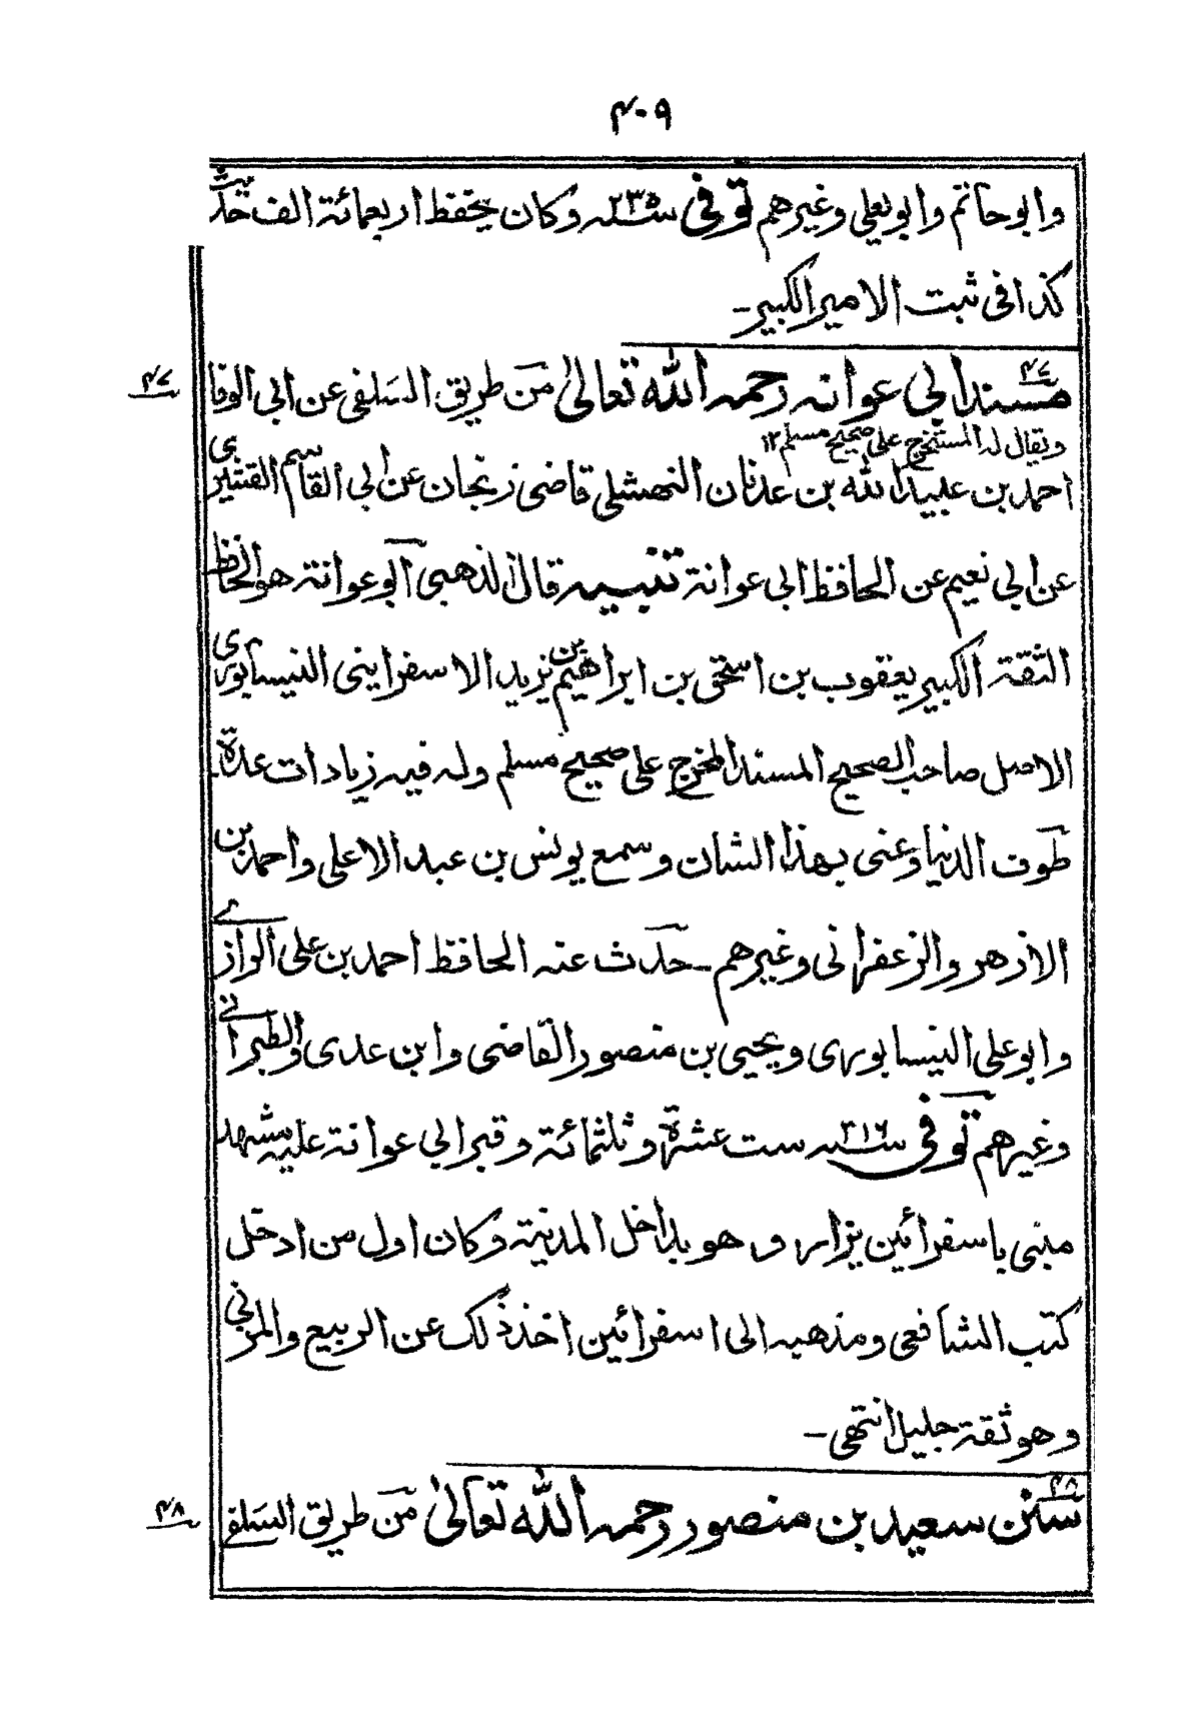 ۴۰۹
وابوحاتم وابويعلي وغيرهم توفي سنة ۲۳۵ وكان يحفظ اربعمائة الف حديث
كذا في ثبت الامير الكبير ـ
۴۷
۴۷
مسند ابي عوانه رحمه الله تعالىٰ من طريق السلفي عن ابي الوفا
ويقال له المستخرج على صحيح مسلم ۱۲
احمد بن عبيد الله بن عدنان النهشلي قاضي زنجان عن ابي القاسم القشيري
عن ابي نعيم عن الحافظ ابي عوانة تنبيه قال الذهبي ابوعوانة هو الحافظ
الثقة الكبير يعقوب بن اسحٰق بن ابراهيم بن يزيد الاسفرايني النيسابوري
الاصل صاحب الصحيح المسند المخرج على صحيح مسلم وله فيه زيادات عدة
طوف الدنيا وعنى بهذا الشان وسمع يونس بن عبد الاعلى واحمد بن
الازهر والزعفراني وغيرهم ـ حدث عنه الحافظ احمد بن علي الرازي
وابو علي النيسابوري ويحيى بن منصور القاضي وابن عدي والطبراني
وغيرهم توفي سنة ۳۱۶ ست عشرة وثلثمائة وقبر ابي عوانة عليه مشهد
مبنى باسفرائين يزار وهو بداخل المدينة وكان اول من ادخل
كتب الشافعي ومذهبه الى اسفرائين اخذ ذلك عن الربيع والمزني
وهو ثقة جليل انتهى ـ
۴۸
۴۸
سنن سعيد بن منصور رحمه الله تعالىٰ من طريق السلفي